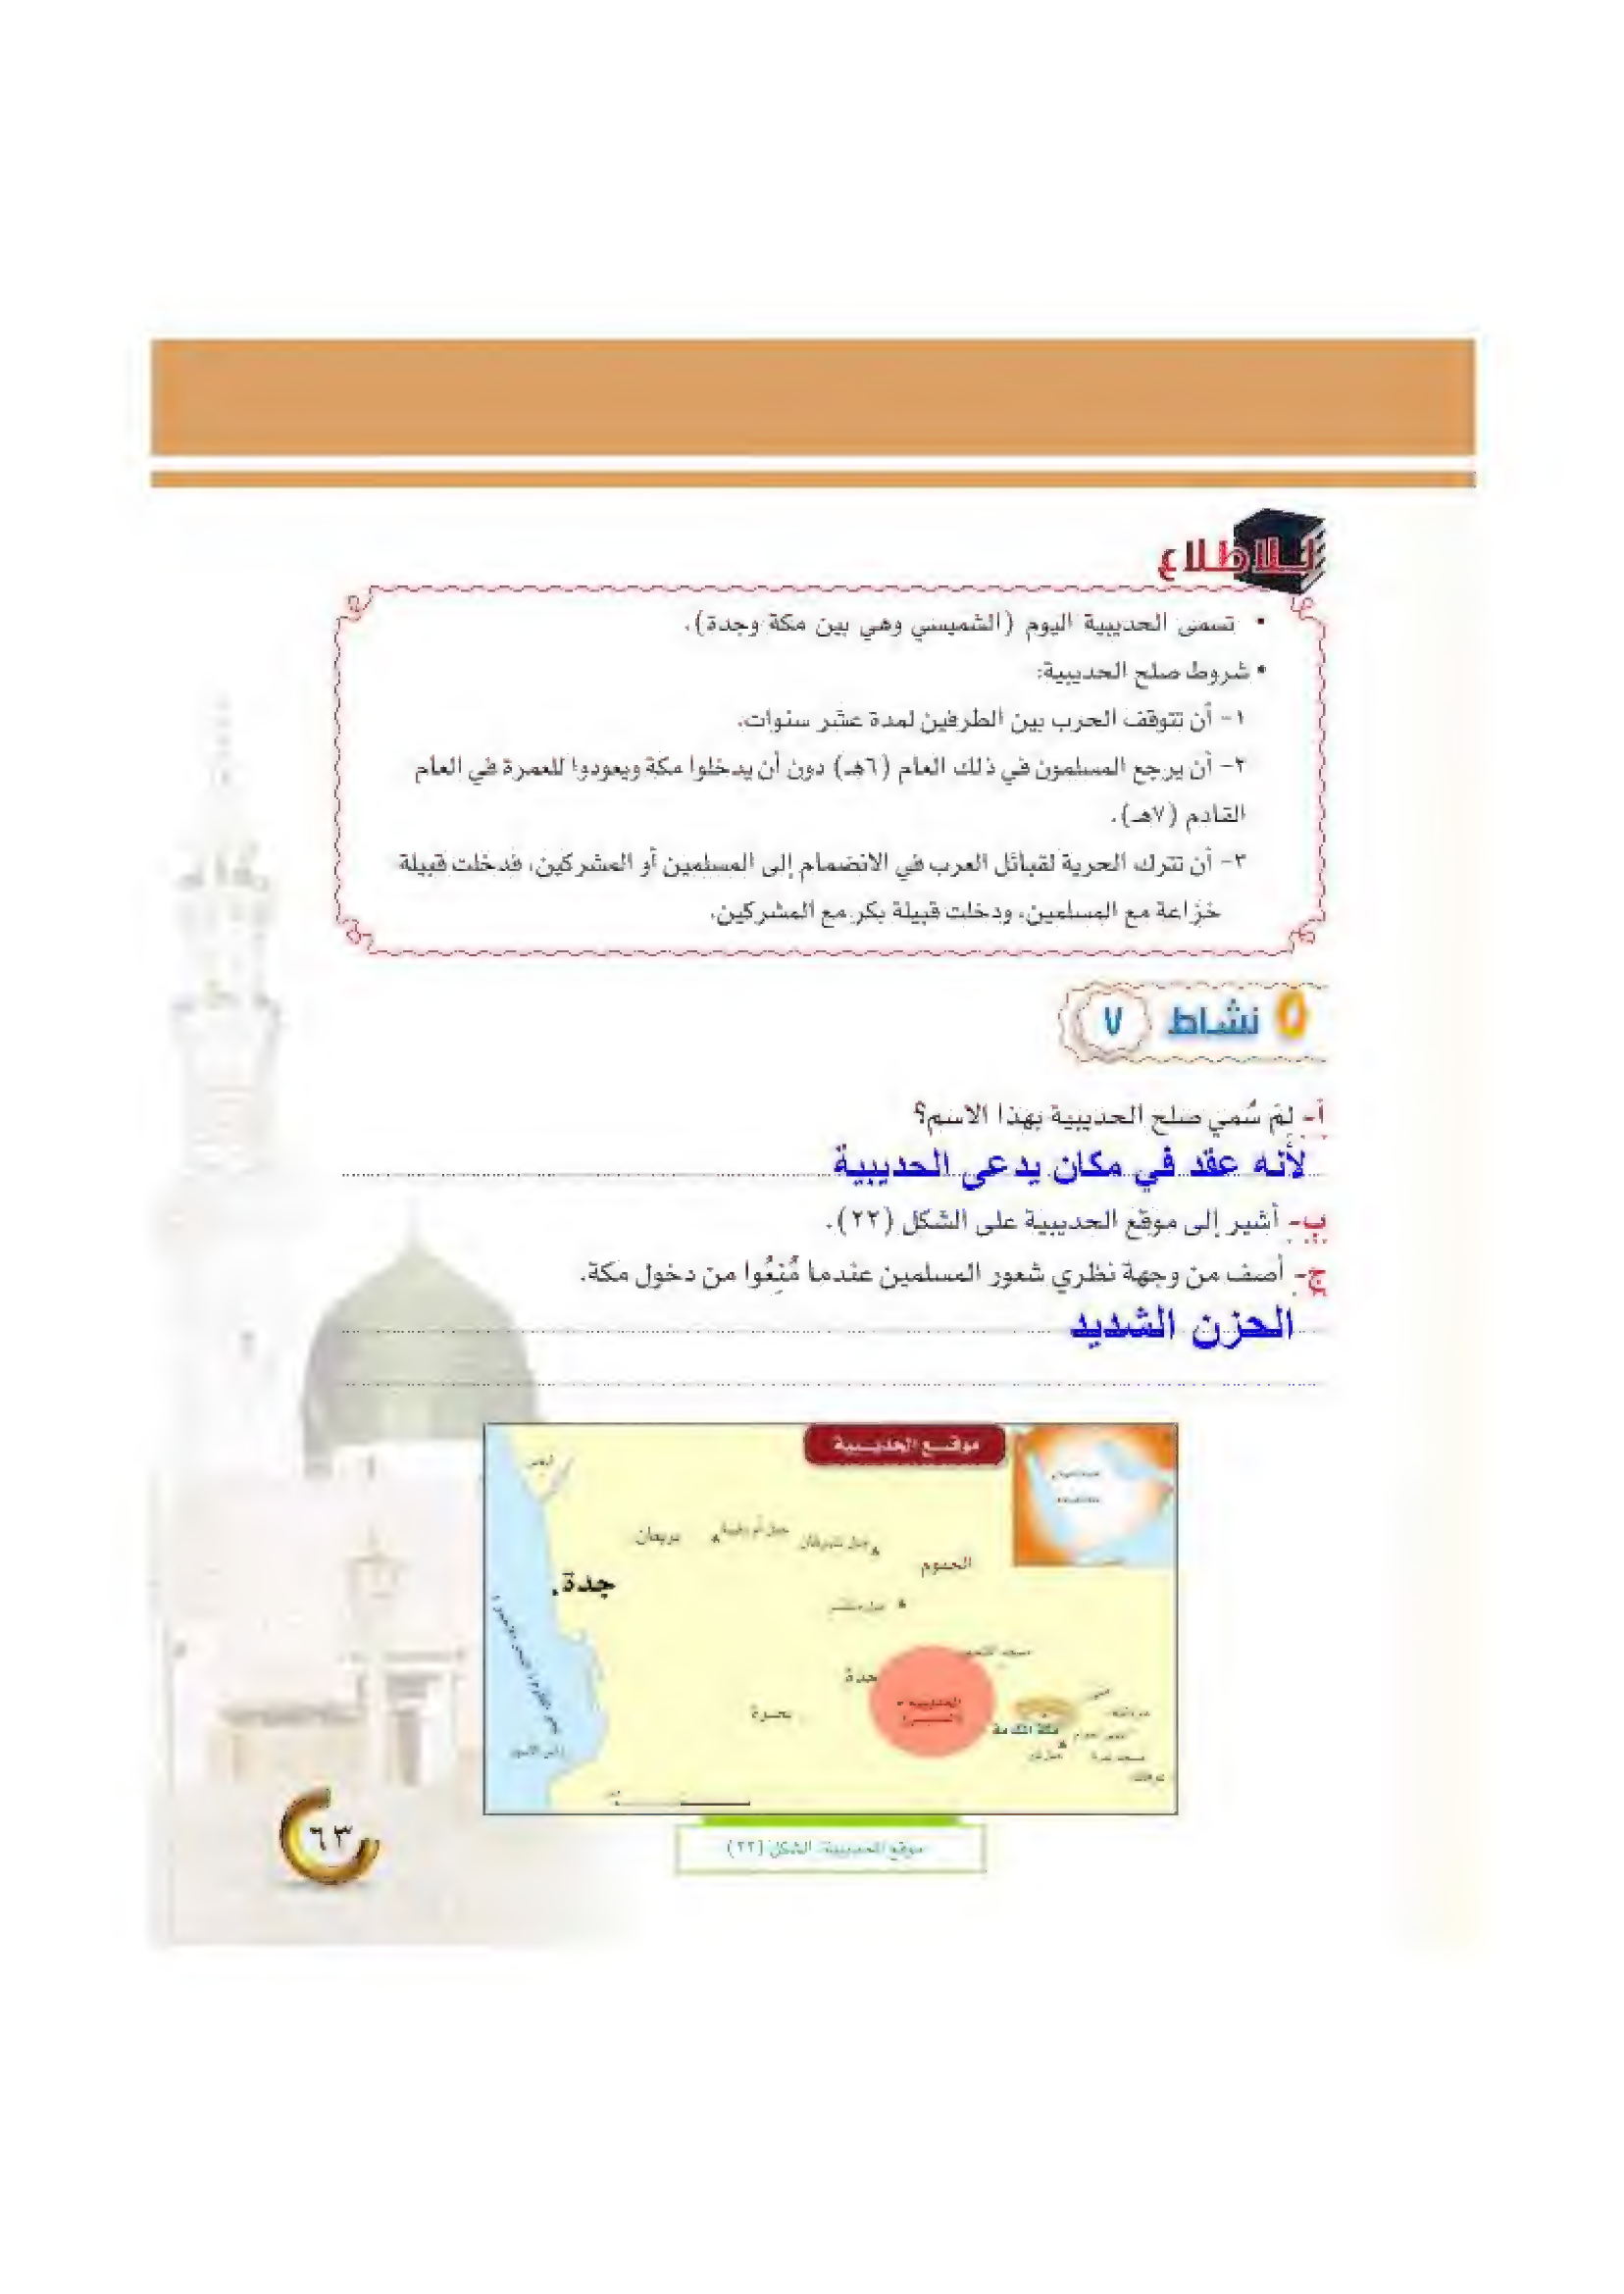 للاطلاع
• تسمى الحديبية اليوم (الشميسي وهي بين مكة وجدة).
• شروط صلح الحديبية:
١- أن تتوقف الحرب بين الطرفين لمدة عشر سنوات.
٢- أن يرجع المسلمون في ذلك العام (٦هـ) دون أن يدخلوا مكة ويعودوا للعمرة في العام
القادم (٧هـ).
٣- أن تترك الحرية لقبائل العرب في الانضمام إلى المسلمين أو المشركين، فدخلت قبيلة
خزاعة مع المسلمين، ودخلت قبيلة بكر مع المشركين.
نشاط ٧
أ- لِمَ سُمي صلح الحديبية بهذا الاسم؟
لأنه عقد في مكان يدعى الحديبية
ب- أشير إلى موقع الحديبية على الشكل (٢٢).
ج- أصف من وجهة نظري شعور المسلمين عندما مُنِعُوا من دخول مكة.
الحزن الشديد
موقـع الحديـبية
بريمان
الجموم
جدة
حدة
الحديبية
بحرة
مكة المكرمة
موقع الحديبية، الشكل (٢٢)
٦٣